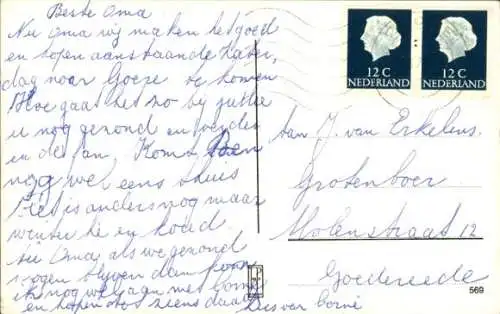 Beste Oma
Nu Oma wij maken het goed
en hopen aanstaande zater
dag naar Goeree te komen
Hoe gaat het zo bij jullie
u nog gezond en
en de Jan, Kom
nog wel eens thuis
Het is anders nog maar
winter he en koud
Nu Oma als we gezond
mogen blijven dan
ik nog wel
en hopen
12 C
NEDERLAND
12 C
NEDERLAND
aan J. van Erkelens
Grotenboer
Molenstraat 12
Goedereede
569